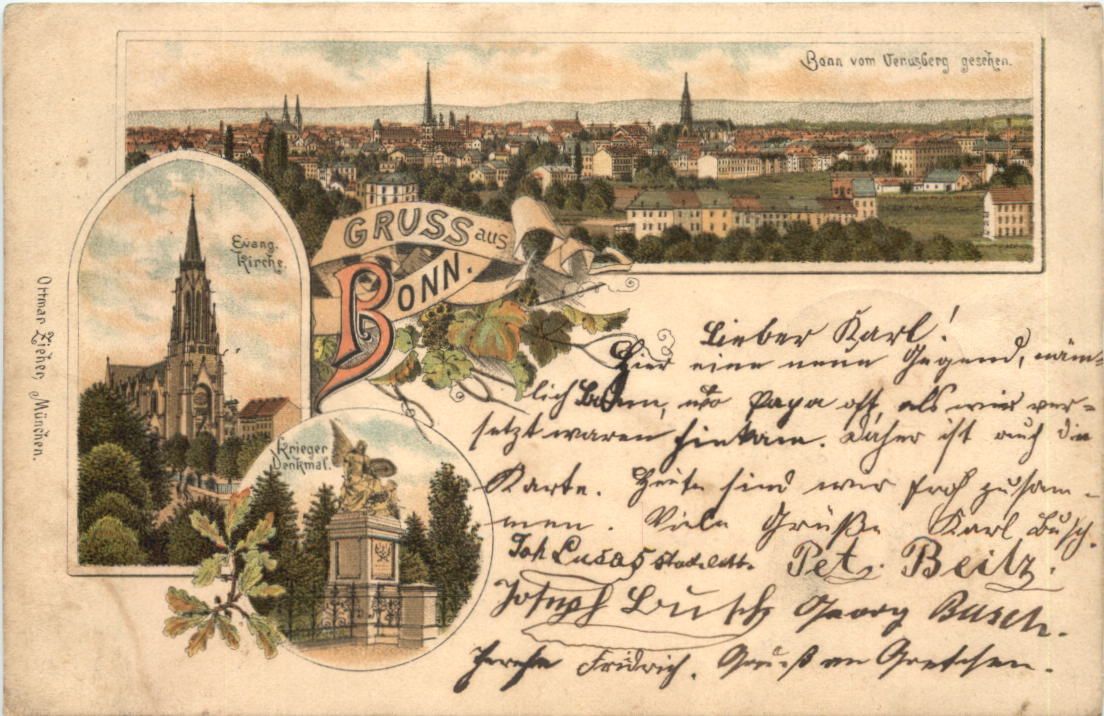 Bonn vom Venusberg gesehen.
Evang.
Kirche.
GRUSS aus
BONN.
Krieger
Denkmal.
Ottmar Zieher, München.
Lieber Karl!
Hier eine neue Gegend, näm-
lich Bonn, wo Papa oft, als wir ver-
setzt waren hinkam. Daher ist auch die
Karte. Heute sind wir froh zusam-
men. Viele Grüße Karl Busch.
Joh. Lucas Pet. Beitz.
Joseph Busch Georg Busch.
Fridrich. Gruß an Gretchen.